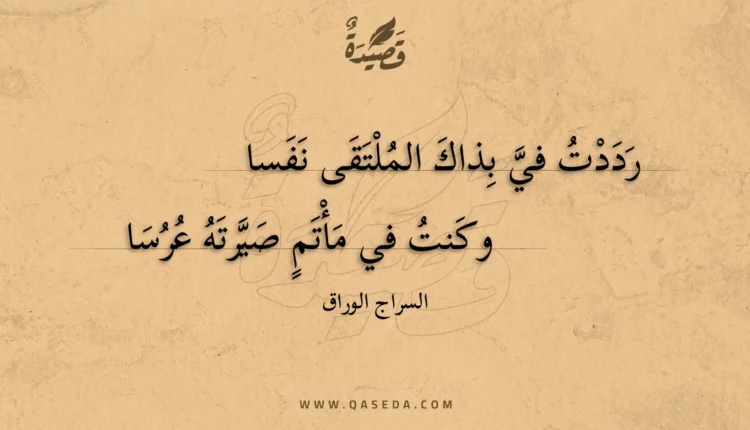 قَصِيدَةٌ
رَدَدْتُ فيَّ بِذاكَ المُلْتَقَى نَفَسا
وكَنتُ في مَأْتَمٍ صَيَّرتَهُ عُرُسَا
السراج الوراق
WWW.QASEDA.COM